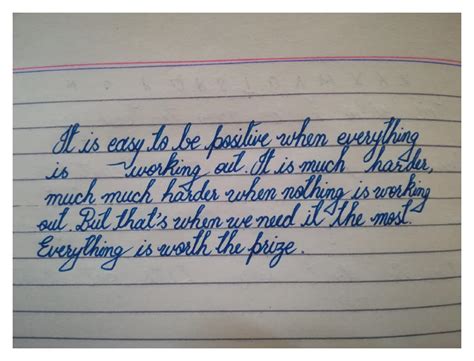 It is easy to be positive when everything
is ~working out. It is much harder,
much much harder when nothing is working
out. But that's when we need it the most.
Everything is worth the prize.